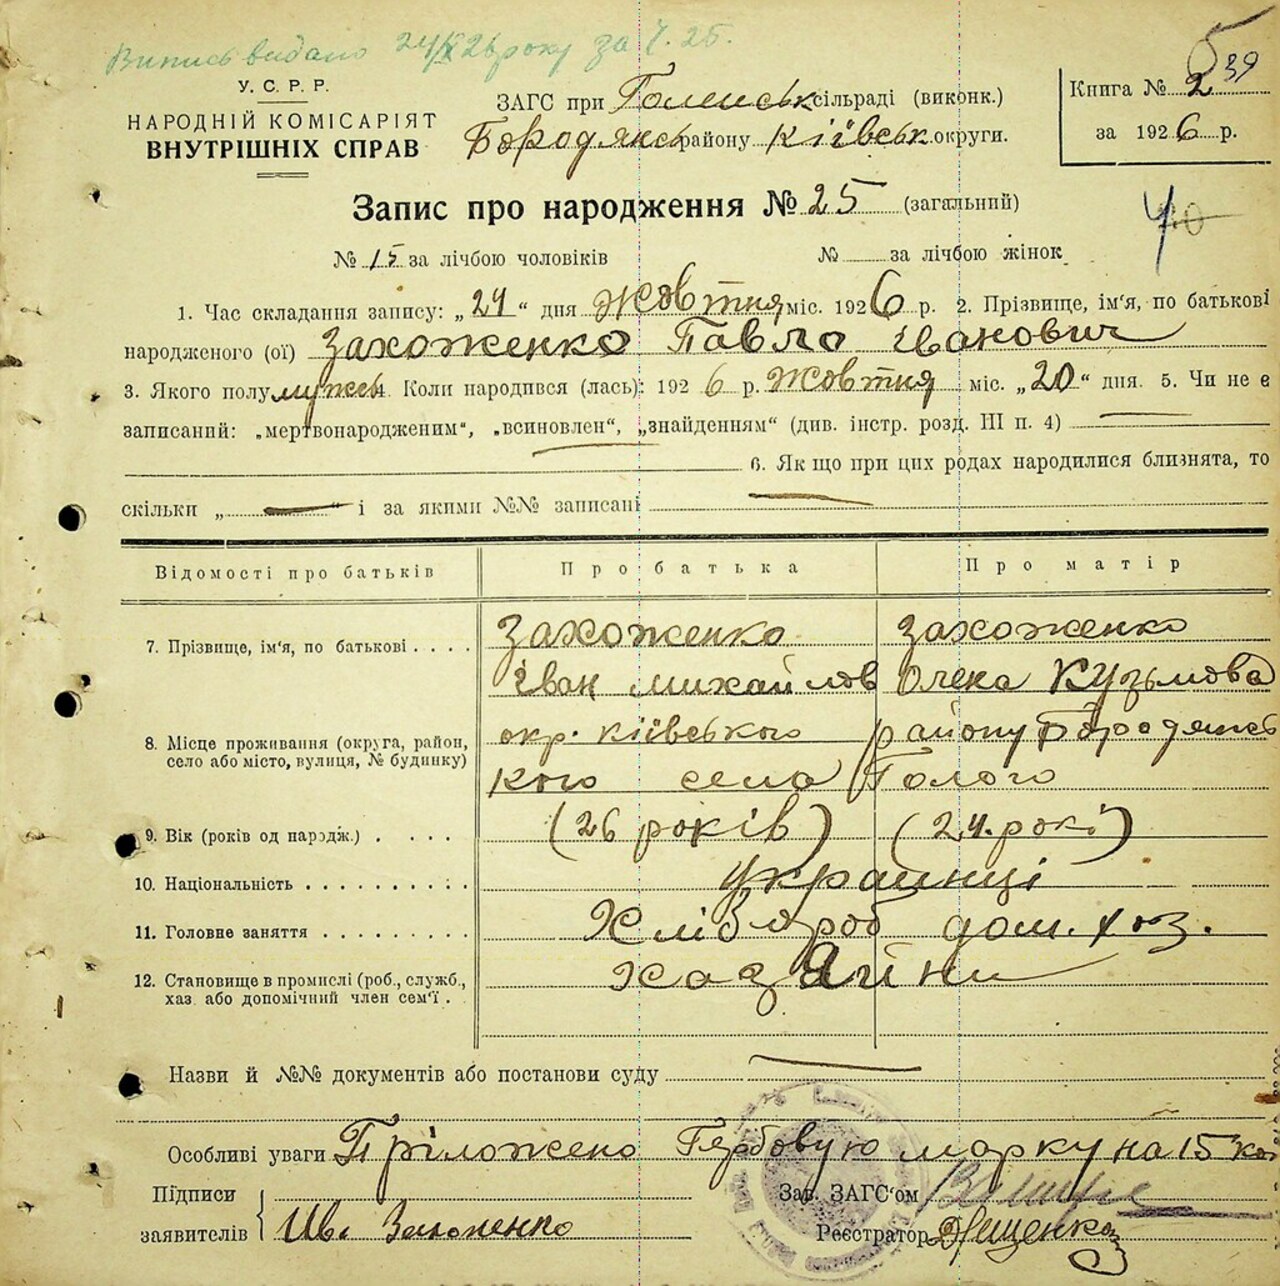 Випись видано 24/X 26 року за Ч. 25.
39
У. С. Р. Р.
НАРОДНІЙ КОМІСАРІЯТ
ВНУТРІШНІХ СПРАВ
ЗАГС при Голенськ сільраді (виконк.)
Бородянськ району Київськ округи.
Книга № 2
за 1926 р.
Запис про народження № 25 (загальний)
40
№ 15 за лічбою чоловіків № за лічбою жінок
1. Час складання запису: „24“ дня Жовтня міс. 1926 р. 2. Прізвище, ім'я, по батькові
народженого (ої) Захоженко Павло Іванович
3. Якого полу мужськ 4. Коли народився (лась): 1926 р. Жовтня міс. „20“ дня. 5. Чи не є
записаний: „мертвонародженим“, „всиновлен“, „знайденням“ (див. інстр. розд. III п. 4)
6. Як що при цих родах народилися близнята, то
скільки „ — “ і за якими №№ записані
Відомості про батьків Про батька Про матір
7. Прізвище, ім'я, по батькові . . . . Захоженко Захоженко
Іван Михайлов Олека Кузьмова
8. Місце проживання (округа, район, окр. київського району Бородянсь
село або місто, вулиця, № будинку) кого села Голого
9. Вік (років од народж.) . . . . (26 років) (24. рокі)
10. Національність . . . . . . . . . . українці
11. Головне заняття . . . . . . . . . Хлібороб дом. хоз.
12. Становище в промислі (роб., служб., хазяїни
хаз. або допомічний член сем'ї . .
Назви й №№ документів або постанови суду
Особливі уваги Пріложено Гербовую марку на 15 коп
Підписи
заявителів Ив. Захоженко
Зав. ЗАГС'ом
Реєстратор Ященко